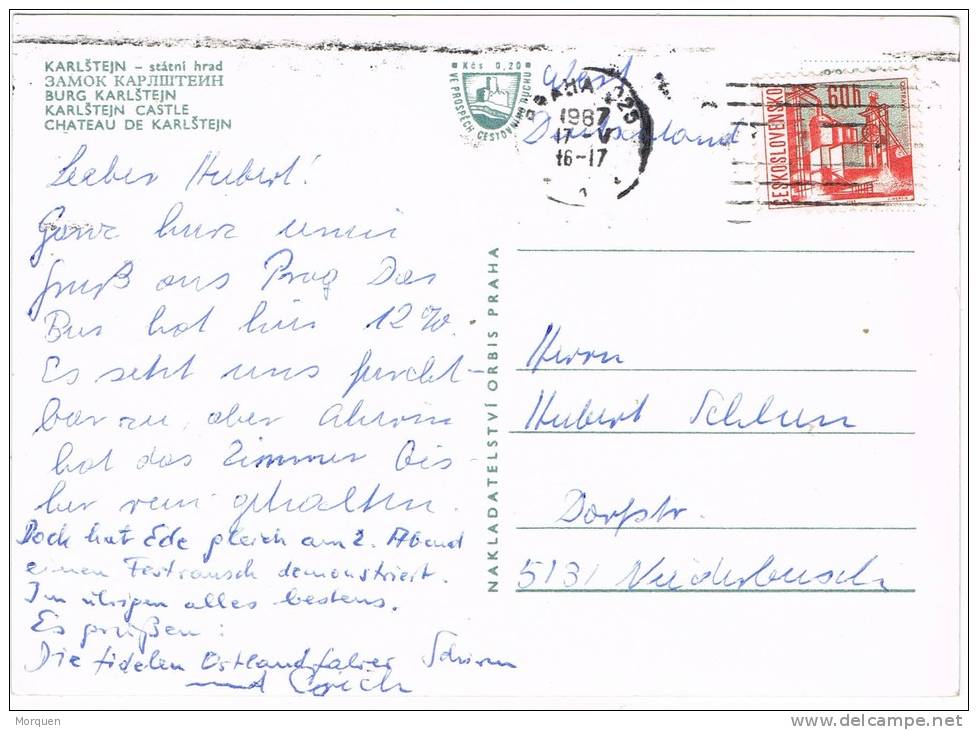 KARLŠTEJN – státní hrad
ЗАМОК КАРЛШТЕИН
BURG KARLŠTEJN
KARLŠTEJN CASTLE
CHATEAU DE KARLŠTEJN
Kčs 0,20
VE PROSPĚCH CESTOVNÍHO RUCHU
PRAHA 025
1967
17-V
16-17
ČESKOSLOVENSKO
60h
OSTRAVA
Deutschland
Lieber Hubert!
Ganz kurz
Gruß aus Prag Das
Bier hat hier 12%.
Es setzt uns furcht-
bar zu, aber
hat das Zimmer bis-
her rein gehalten.
Doch hat Ede gleich am 2. Abend
einen Festrausch demonstriert.
Im übrigen alles bestens.
Es grüßen:
Die fidelen Ostlandfahrer
und
NAKLADATELSTVÍ ORBIS PRAHA
Herrn
Hubert
Dorfstr.
5131 Niederbusch
Morquen
delcampe.net